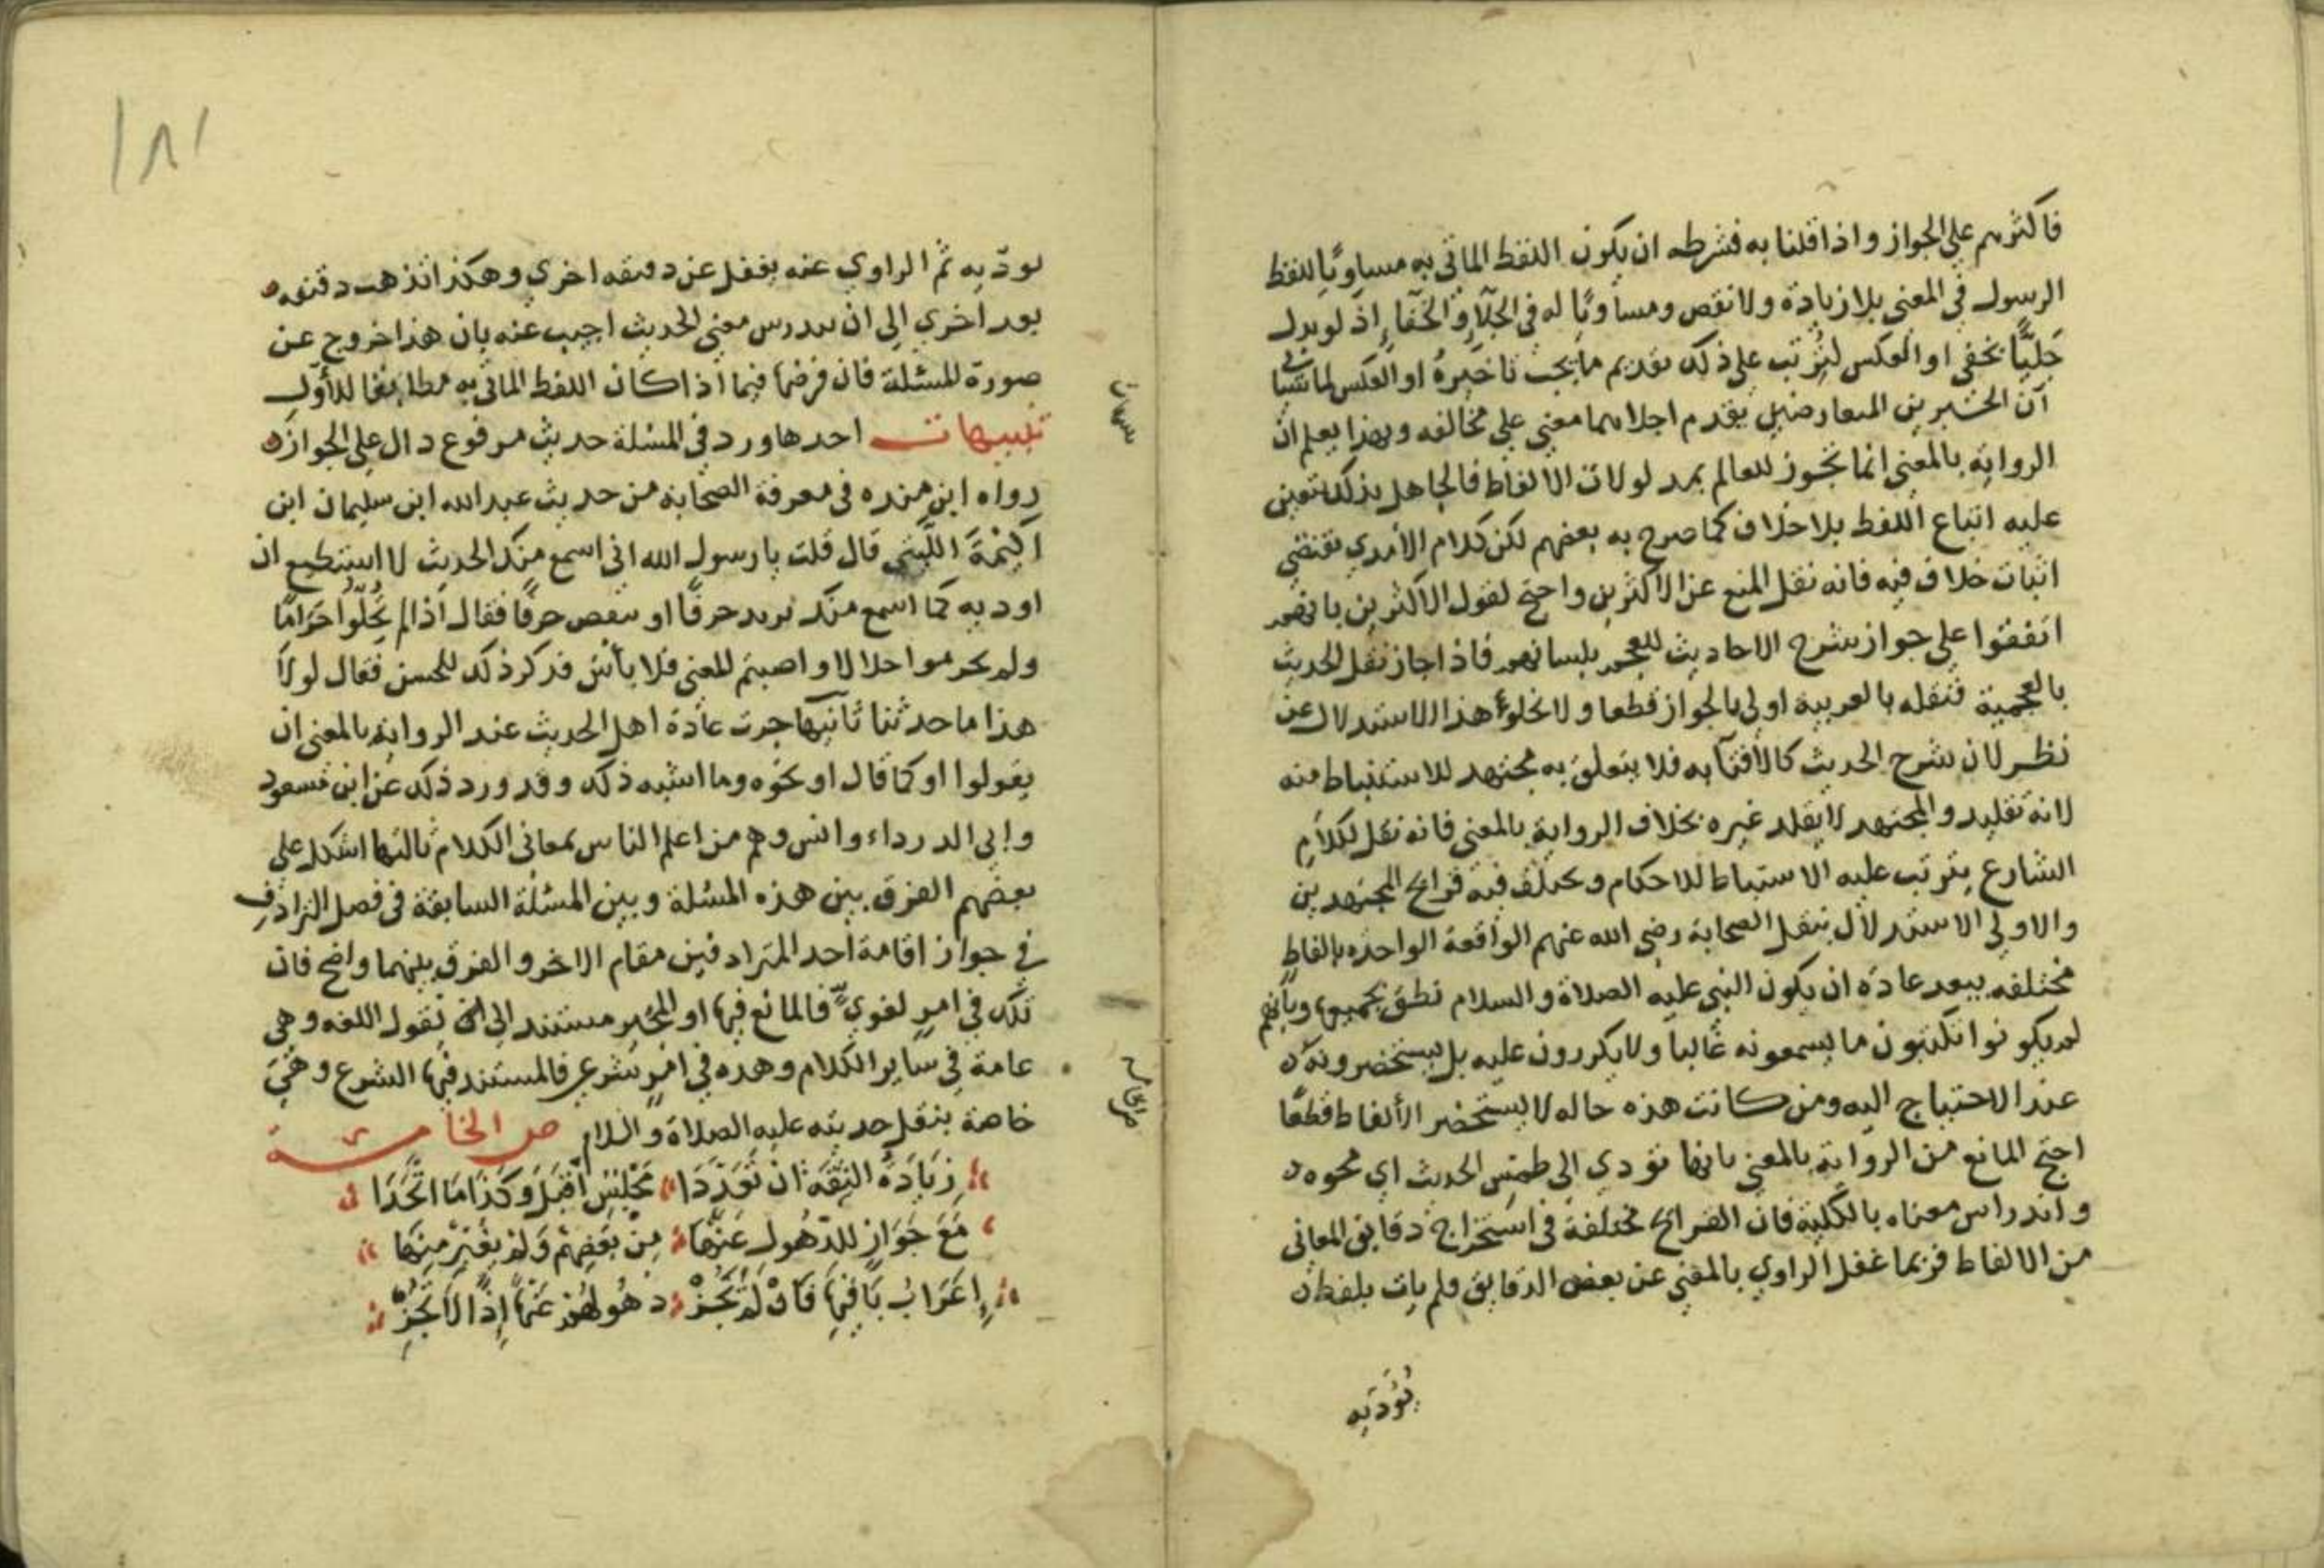 فاكثرهم علي الجواز واذا قلنا به فشرطه ان يكون اللفظ الماتي به مساويًا للفظ
الرسول في المعني بلا زيادة ولا نقص ومساويًا له في الجلآء والخفآء اذ لو بدل
جليًّا بخفي او العكس لترتب علي ذلك تقديم ما يجب تاخيره او العكس لما
ان الخبرين المتعارضين يقدم اجلاهما معني علي مخالفه وبهذا يعلم ان
الرواية بالمعني انما تجوز للعالم بمدلولات الالفاظ فالجاهل بذلك يتعين
عليه اتباع اللفظ بلا خلاف كما صرح به بعضهم لكن كلام الآمدي يقتضي
اثبات خلاف فيه فانه نقل المنع عن الاكثرين واحتج لقول الاكثرين بانهم
اتفقوا علي جواز شرح الاحاديث للعجم بلسانهم فاذا جاز نقل الحديث
بالعجمية فنقله بالعربية اولي بالجواز قطعا ولا يخلوا هذا الاستدلال عن
نظر لان شرح الحديث كالافتآء به فلا يتعلق به مجتهد للاستنباط منه
لانه تقليد والمجتهد لا يقلد غيره بخلاف الرواية بالمعني فانه نقل لكلام
الشارع يترتب عليه الاستنباط للاحكام ويختلف فيه قرائح المجتهدين
والاولي الاستدلال بنقل الصحابة رضي الله عنهم الواقعة الواحده بالفاظ
مختلفه يبعد عادة ان يكون النبي عليه الصلاة والسلام نطق بجميعها وبانهم
لم يكونوا يكتبون ما يسمعونه غالبا ولا يكررون عليه بل يستحضرونه
عند الاحتياج اليه ومن كانت هذه حاله لا يستحضر الألفاظ قطعًا
احتج المانع من الرواية بالمعني بانها تودي الي طمس الحديث اي محوه
واندراس معناه بالكلية فان القرائح مختلفة في استخراج دقايق المعاني
من الالفاظ فربما غفل الراوي بالمعني عن بعض الدقايق ولم يات بلفظ
يُؤَدّيه
يودّيه ثم الراوي عنه يغفل عن دقيقه اخري وهكذا تذهب دقيقه
بعد اخري الي ان يندرس معني الحديث اجيب عنه بان هذا خروج عن
صورة المسئلة فان فرضها فيما اذا كان اللفظ الماتي به مطابقا للأول
تنبيهات احدها ورد في المسئلة حديث مرفوع دال علي الجواز
رواه ابن منده في معرفة الصحابة من حديث عبد الله ابن سليمان ابن
اكيْمَةَ اللَّيثي قال قلت يا رسول الله اني اسمع منك الحديث لا استطيع ان
اوديه كما اسمع منك يزيد حرفًا او ينقص حرفًا فقال اذا لم تُحِلّوا حَرَامًا
ولم تحرموا حلالا واصبتم المعني فلا بأس فذكر ذلك للحسن فقال لولا
هذا ما حدثنا ثانيها جرت عادة اهل الحديث عند الرواية بالمعني ان
يقولوا او كما قال او نحوه وما اشبه ذلك وقد ورد ذلك عن ابن مسعود
وابي الدرداء وانس وهم من اعلم الناس بمعاني الكلام ثالثها اشكل علي
بعضهم الفرق بين هذه المسئلة وبين المسئلة السابقة في فصل الترادف
في جواز اقامة احد المترادفين مقام الاخر والفرق بينهما واضح فان
تلك في امرٍ لغويٍّ فالمانع فيها او المجيز مستند الي النقول اللغه وهي
عامة في ساير الكلام وهده في امرٍ شرعي فالمستند فيها الشرع وهي
خاصة بنقل حديثه عليه الصلاة والسلام ص الخامسة
زِيَادَةُ الثِّقَة ان تَعَدَّدَا مَجْلِسٌ اقْبَلْ وَكَذَا مَا اتَّحَدَا
مَعَ جَوَازٍ للذّهُولِ عَنْهَا مِنْ بَعْضِهِمْ وَلَمْ يُغَيِّرْ مِنْهَا
إِعْرَابُ بَاقِيهَا فَانْ لَمْ يَجُزْ ذهُولهُمْ عَنْهَا إِذًا لَا تُجِزْ